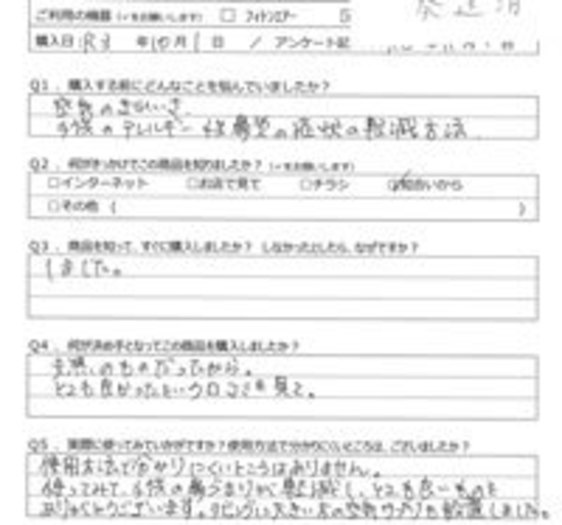 ご利用の機器 (✓をお願いします) □ フィトンエアー
発送済
購入日:R3 年10月1日 / アンケート記
Q1. 購入する前にどんなことを悩んでいましたか?
空気のきれいさ。
子供のアレルギー性鼻炎の症状の軽減方法
Q2. 何がきっかけでこの商品を知りましたか? (✓をお願いします)
□インターネット □お店で見て □チラシ ☑知合いから
□その他 ( )
Q3. 商品を知って、すぐに購入しましたか? しなかったとしたら、なぜですか?
しました。
Q4. 何が決め手となってこの商品を購入しましたか?
天然のものだったから。
とても良かったというクロコミを見て。
Q5. 実際に使ってみていかがですか?使用方法で分かりにくいところは、ございましたか?
使用方法で分かりにくいところはありません。
使ってみて、子供の鼻づまりが軽減し、とても良いものを
ありがとうございます。リビングに大きい木の空気 も設置しました。